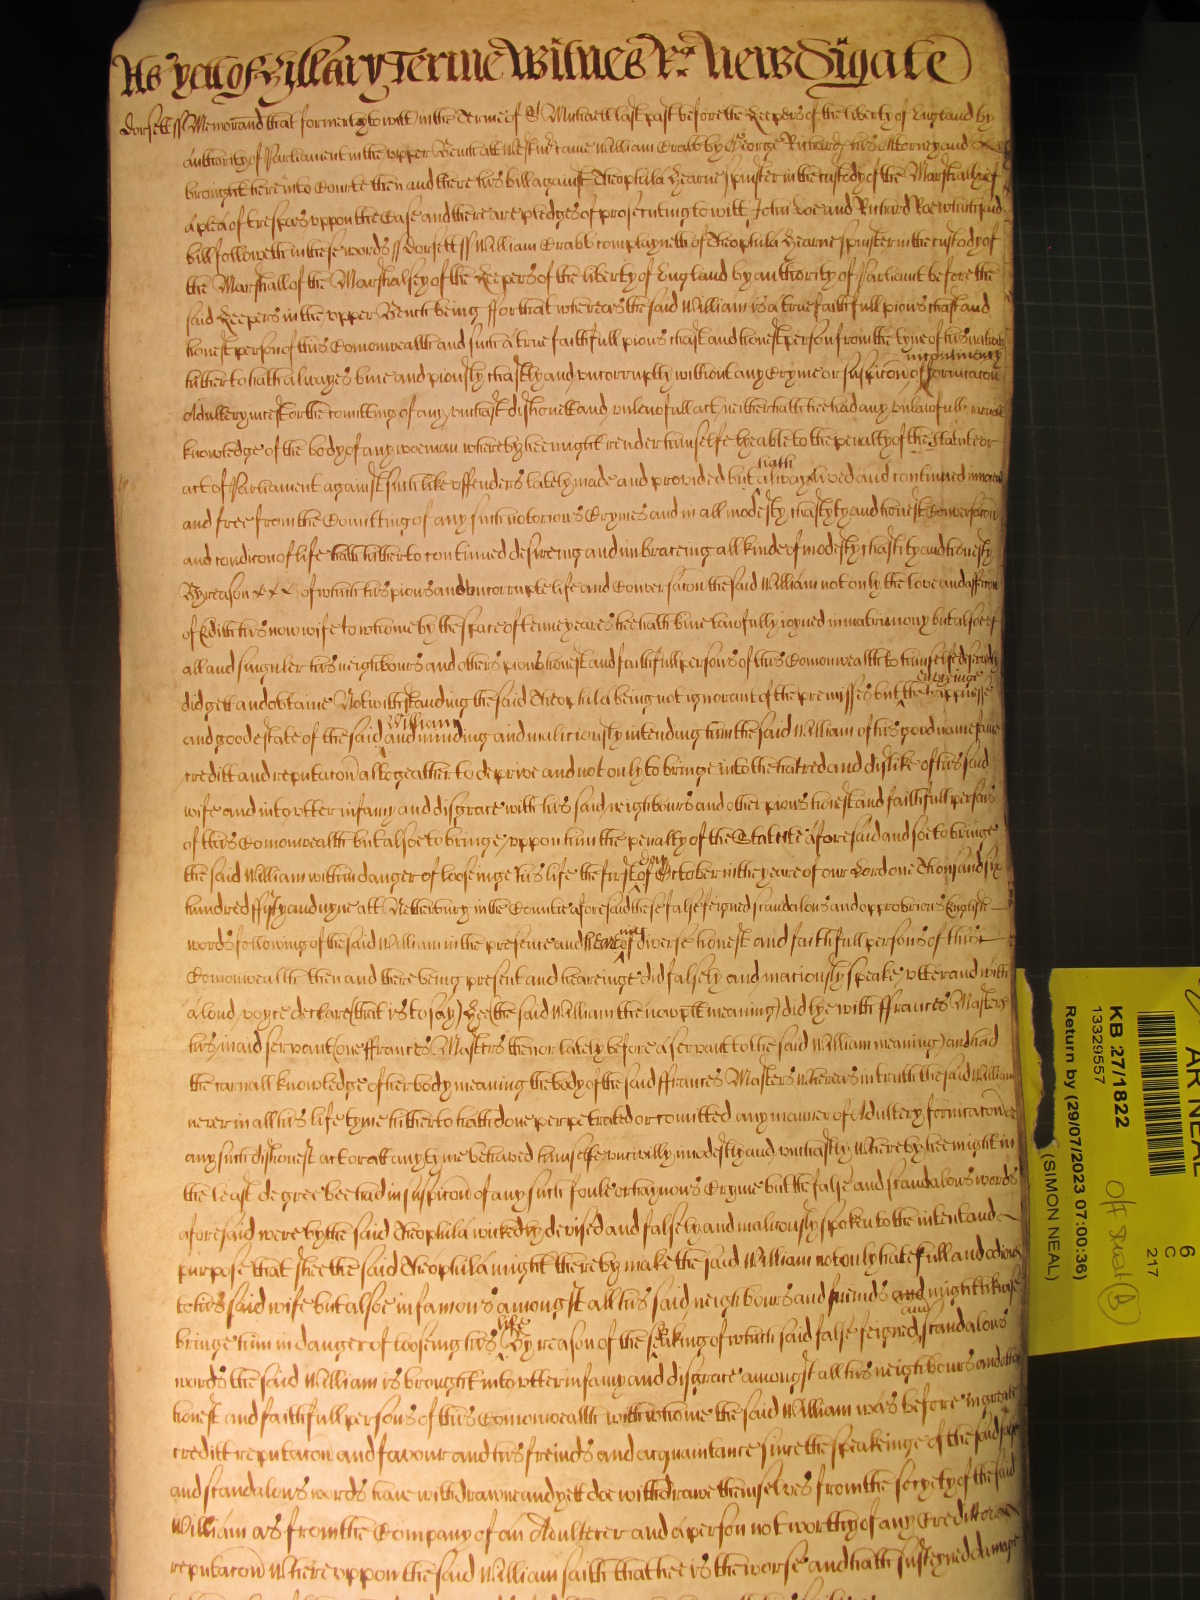 As yett of Hillary Terme Witnes R: Newdigate
Dorsett ss Memorand that formerly to witt in the Terme of St Michaell last past before the Keepers of the liberty of England by
authority of Parliament in the upper Bench att Westm came William Crabb by George Richards his Attorney and
brought here into Courte then and there his bill against Theophila Hearne spinster in the custody of the Marshall &c of
a plea of trespas uppon the Case and there are pledges of prosecuting to witt John Doe and Richard Roe which said
bill followeth in these words ss Dorsett ss William Crabb complayneth of Theophila Hearne spinster in the custody of
the Marshall of the Marshalsey of the Keepers of the liberty of England by authority of Parliamt before the
said Keepers in the upper Bench being ffor that whereas the said William is a true faithfull pious chast and
honest person of this Comonwealth and such a true faithfull pious chast and honest person from the tyme of his nativity
hitherto hath alwayes bine and piously chastly and uncorruptly without any Cryme or suspicon of incontinency fornicacon
Adultery incest or the comitting of any unchast dishonest and unlawfull act neither hath hee had any unlawfull carnall
knowledge of the body of any woeman whereby hee might render himselfe lyeable to the penalty of the Statute or
act of Parliament against such like offenders lately made and provided but hath alwayes lived and continued
and free from the Comitting of any such notorious Crymes and in all modesty chastyty and honest Conversacon
and condicon of life hath hitherto continued desireing and imbraceing all kinde of modesty chastity and honesty
By reason x x x of which his pious and uncorrupte life and Conversacon the said William not only the love and affeccon
of Edith his now wife to whome by the space of tenne yeares hee hath bine lawfully ioyned in matrimony but alsoe of
all and singuler his neighbours and others pious honest and faithfull persons of this Comonwealth to himselfe deservedly
did gett and obtaine Notwithstanding the said Theophila being not ignorant of the premisses but the happinesse
and good estate of the said William envyinge and minding and maliciously intending him the said William of his good name fame
creditt and reputacon altogeather to deprive and not only to bringe into the hatred and dislike of his said
wife and into utter infamy and disgrace with his said neighbours and other pious honest and faithfull persons
of this Comonwealth but alsoe to bringe uppon him the penalty of the Statute aforesaid and soe to bringe
the said William within danger of looseinge his life the first day of October in the yeare of our Lord one Thousand six
hundred ffifty and nyne att Netherbury in the Countie aforesaid these false feigned scandalous and opprobrious English
words following of the said William in the presence and hearing of diverse honest and faithfull persons of this
Comonwealth then and there being present and heareinge did falsely and maciously speake utter and with
a loud voyce declare (that is to say) Hee (the said William the now plt meaning) did lye with ffrances Masters
his maid servant (one ffrances Masters then or lately before a servant to the said William meaning) and had
the carnall knowledge of her body meaning the body of the said ffrances Masters Whereas in truth the said William
never in all his life tyme hitherto hath done perpetrated or comitted any manner of Adultery fornicacon or
any such dishonest act or at any tyme behaved himselfe uncivilly imodestly and unchastly Whereby hee might in
the least degree bee had in suspicon of any such foule or haynous Cryme but the false and scandalous words
aforesaid were by the said Theophila wickedly devised and falsely and maliciously spoken to the intent and
purpose that shee the said Theophila might thereby make the said William not only hatefull and odious
to his said wife but alsoe infamous amongst all his said neighbours and freinds and might likewise
bringe him in danger of loosing his life By reason of the speaking of which said false feigned and scandalous
words the said William is brought into utter infamy and disgrace amongst all his neighbours and other
honest and faithfull persons of this Comonwealth with whome the said William was before in greate
creditt reputacon and favour and his freinds and acquaintance since the speakeinge of the said false
and scandalous words have withdrawne and yett doe withdrawe themselves from the society of the said
William as from the Company of an Adulterer and a person not worthy of any Creditt or
reputacon Whereuppon the said William saith that hee is the worse and hath susteyned damage
AR NEAL
KB 27/1822
13329557
Return by (29/07/2023 07:00:36)
(SIMON NEAL)
6
C
217
Off Street
B